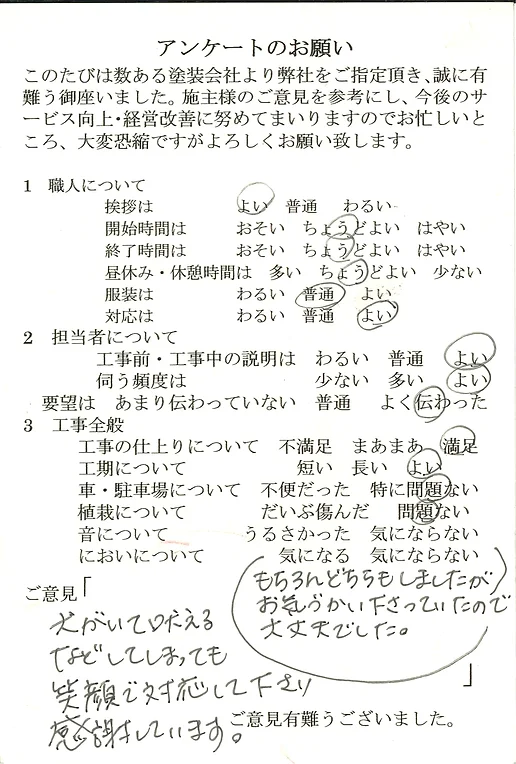 アンケートのお願い
このたびは数ある塗装会社より弊社をご指定頂き、誠に有
難う御座いました。施主様のご意見を参考にし、今後のサ
ービス向上・経営改善に努めてまいりますのでお忙しいと
ころ、大変恐縮ですがよろしくお願い致します。
1 職人について
挨拶は よい 普通 わるい
開始時間は おそい ちょうどよい はやい
終了時間は おそい ちょうどよい はやい
昼休み・休憩時間は 多い ちょうどよい 少ない
服装は わるい 普通 よい
対応は わるい 普通 よい
2 担当者について
工事前・工事中の説明は わるい 普通 よい
伺う頻度は 少ない 多い よい
要望は あまり伝わっていない 普通 よく伝わった
3 工事全般
工事の仕上りについて 不満足 まあまあ 満足
工期について 短い 長い よい
車・駐車場について 不便だった 特に問題ない
植栽について だいぶ傷んだ 問題ない
音について うるさかった 気にならない
においについて 気になる 気にならない
もちろんどちらもしましたが
お気づかい下さっていたので
大丈夫でした。
ご意見「
犬がいて吠える
などしてしまっても
笑顔で対応して下さり
感謝しています。
」
ご意見有難うございました。